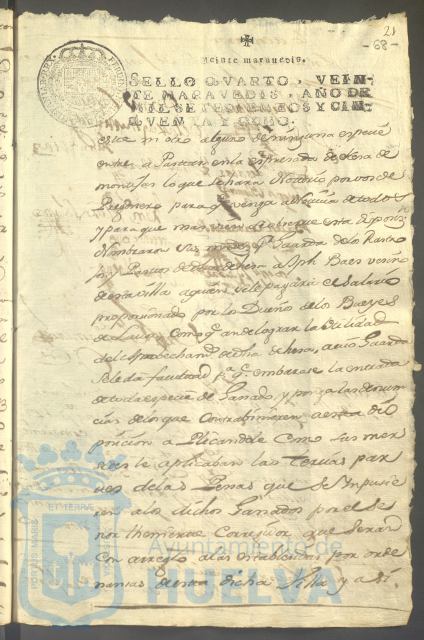 21
-68-
Veinte maravedis.
SELLO QVARTO, VEIN-
TE MARAVEDIS, AÑO DE
MIL SETECIENTOS Y CIN-
QVENTA Y OCHO.
este ni otro alguno de ninguna especie
entre a Pastar en la expresada dehesa de
lo que se hara Notorio por vos de
Pregonero para qe. venga a Noticia de todos
y para que mas bien se observe esta Disposi.on
Nombraron Sus mrds. pr. Guarda de los Rastro
jos y Pastos de dha dehesa a Jph Baes vecino
de esta villa a quien se le pagará el Salario
proporcionado por los Dueños de los Bueyes
de Labor Como qe. an de lograr la Utilidad
del Aprobechamto. de dha dehesa, a cuio Guarda
Se le da facultad pa. qe. embarase la entrada
de toda especie de Ganado, y ponga las denun
cias de los que Contrabinieren a esta dis
posicion aplicandole Como sus mer
cedes le aplicaban las terzias par
tes de las Penas que se Impusie
ren a los dichos Ganados por el Se
nor theniente Correjidor que seran
Con arreglo a las establecidas por orde
nanzas de esta dicha Villa y asi
Ayuntamiento de
HUELVA